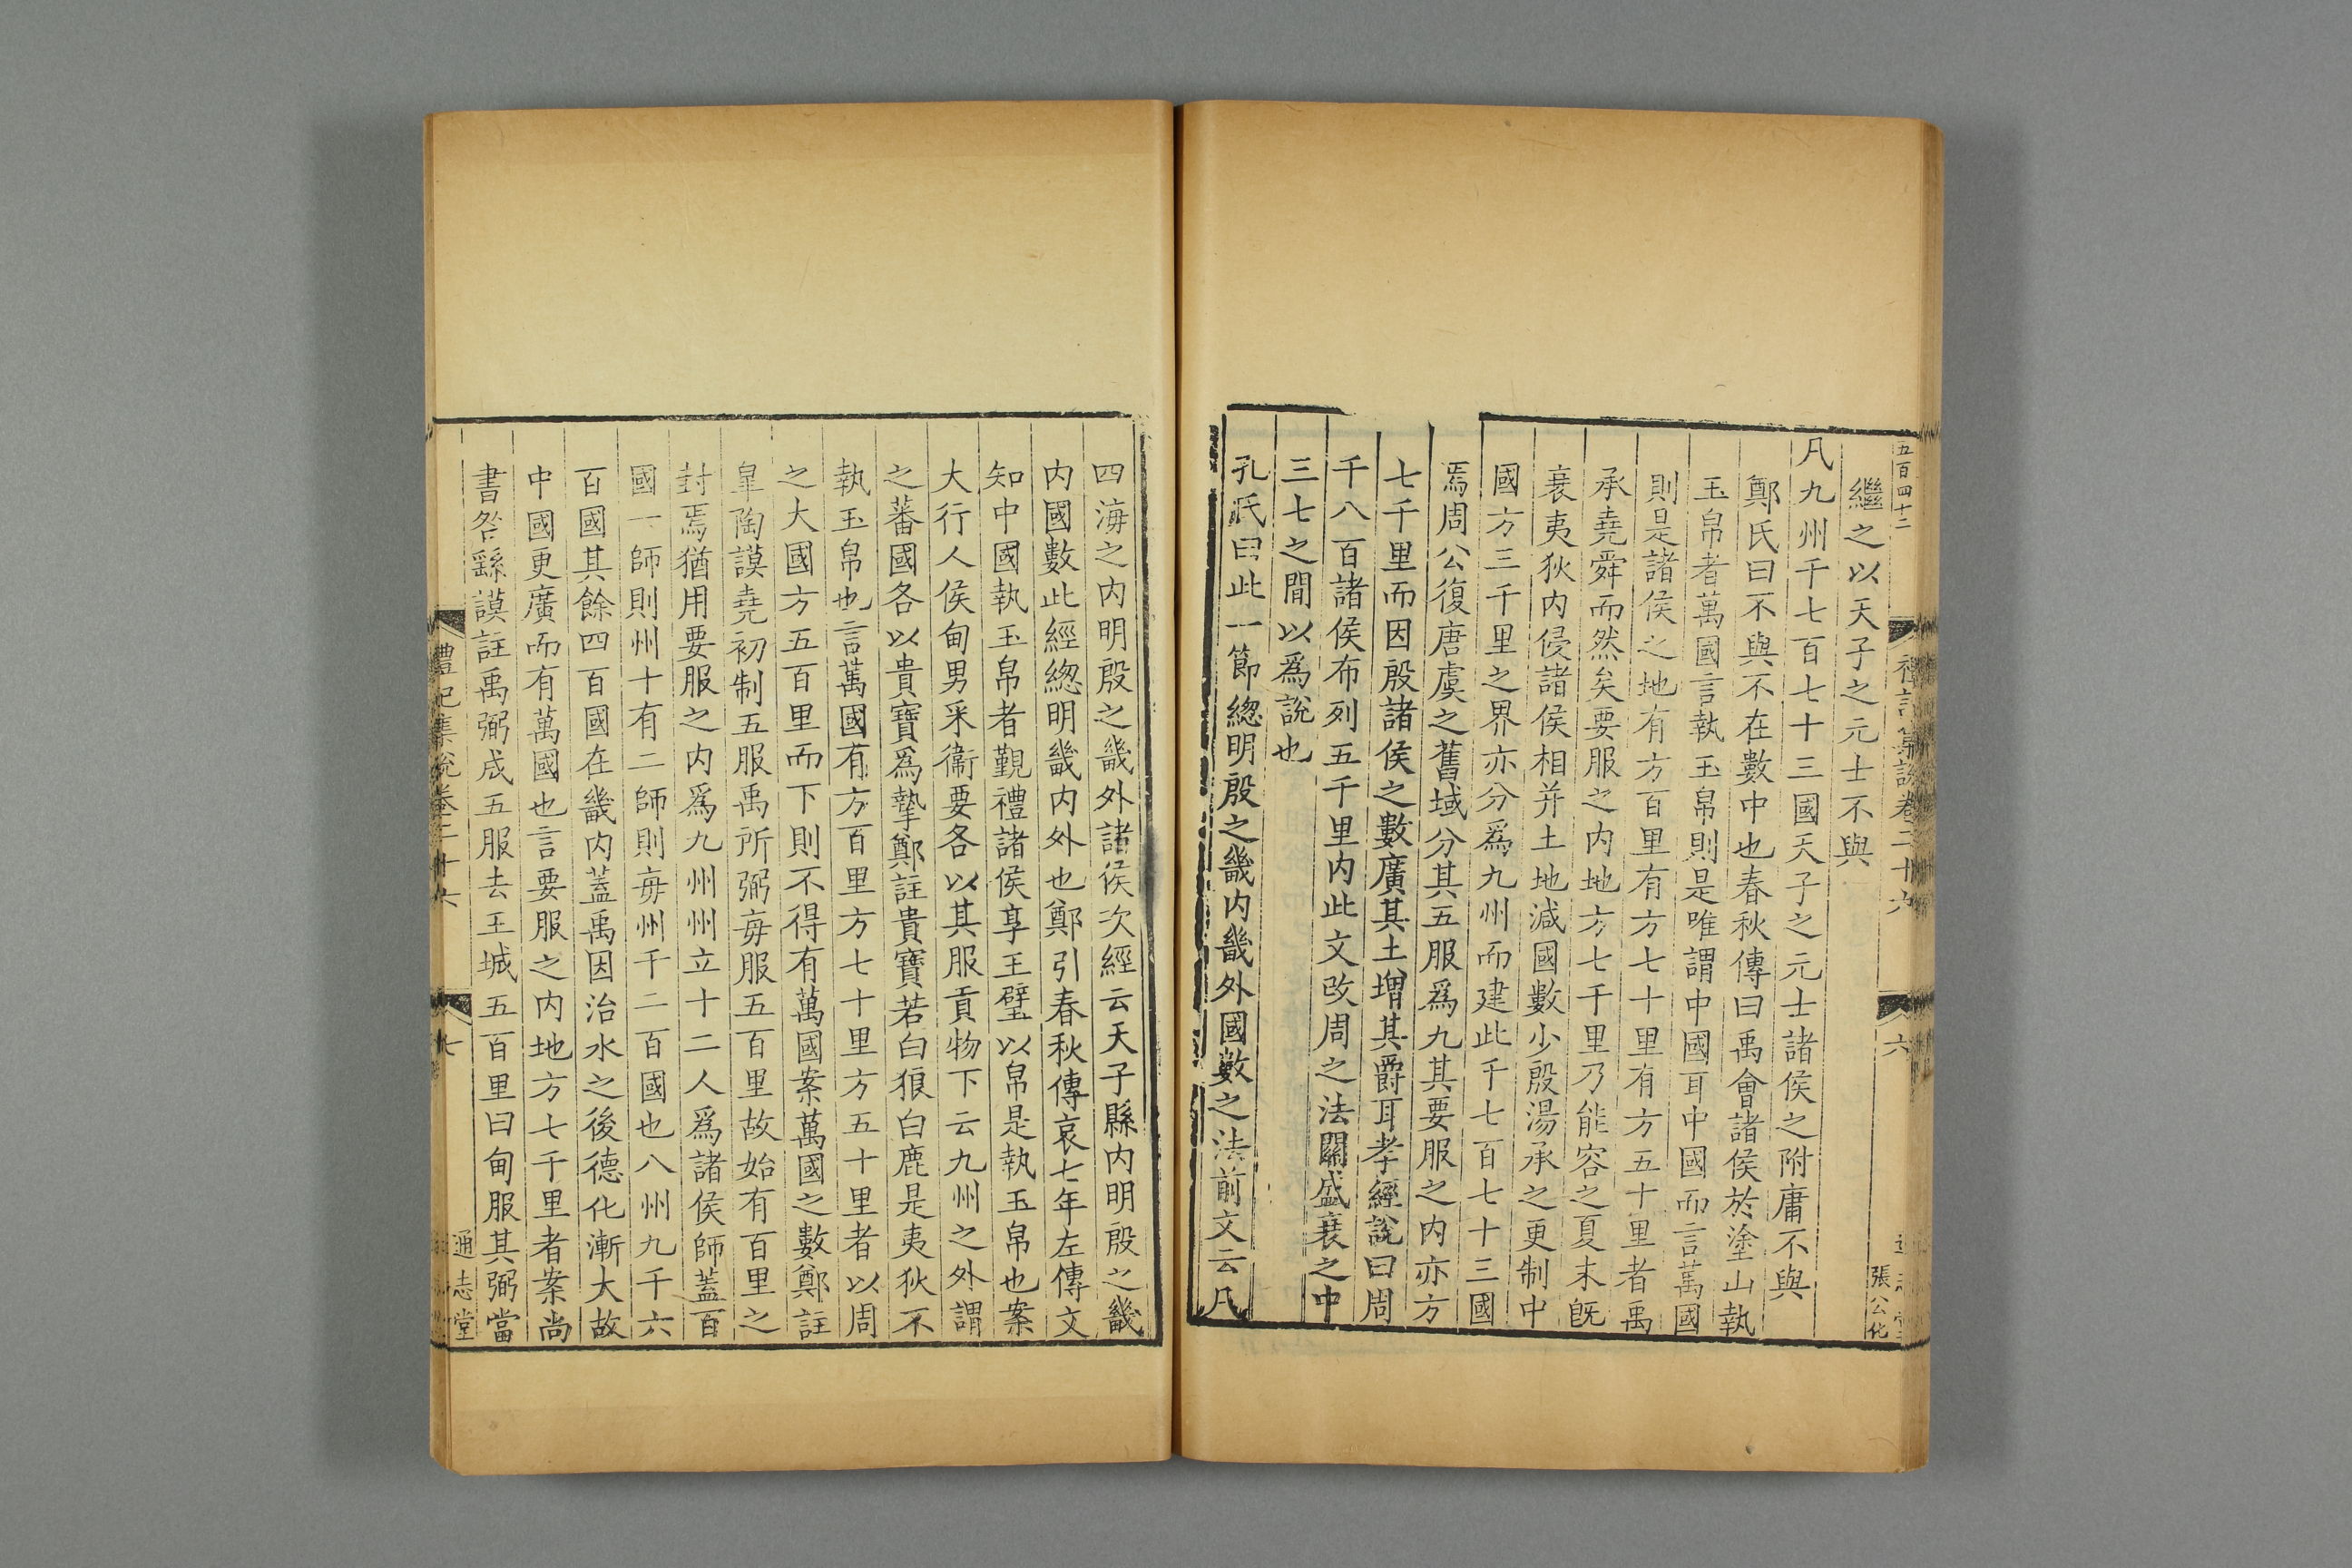 五百四十二
禮記集說卷二十六
六
張公化
繼之以天子之元士不與
凡九州千七百七十三國天子之元士諸侯之附庸不與
鄭氏曰不與不在數中也春秋傳曰禹會諸侯於塗山執
玉帛者萬國言執玉帛則是唯謂中國耳中國而言萬國
則是諸侯之地有方百里有方七十里有方五十里者禹
承堯舜而然矣要服之内地方七千里乃能容之夏末旣
衰夷狄内侵諸侯相并土地減國數少殷湯承之更制中
國方三千里之界亦分爲九州而建此千七百七十三國
焉周公復唐虞之舊域分其五服爲九其要服之内亦方
七千里而因殷諸侯之數廣其土增其爵耳孝經說曰周
千八百諸侯布列五千里内此文改周之法關盛衰之中
三七之間以爲說也
孔氏曰此一節緫明殷之畿内畿外國數之法前文云凡
四海之内明殷之畿外諸侯次經云天子縣内明殷之畿
内國數此經緫明畿内外也鄭引春秋傳哀七年左傳文
知中國執玉帛者覲禮諸侯享王璧以帛是執玉帛也案
大行人侯甸男采衞要各以其服貢物下云九州之外謂
之蕃國各以貴寶爲摯鄭註貴寶若白狼白鹿是夷狄不
執玉帛也言萬國有方百里方七十里方五十里者以周
之大國方五百里而下則不得有萬國案萬國之數鄭註
臯陶謨堯初制五服禹所弼每服五百里故始有百里之
封焉猶用要服之内爲九州州立十二人爲諸侯師蓋百
國一師則州十有二師則每州千二百國也八州九千六
百國其餘四百國在畿内蓋禹因治水之後德化漸大故
中國更廣而有萬國也言要服之内地方七千里者案尚
書咎繇謨註禹弼成五服去王城五百里曰甸服其弼當
禮記集說卷二十六
七
通志堂